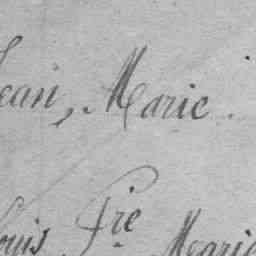 Jean, Marie.
Louis Fre Marie